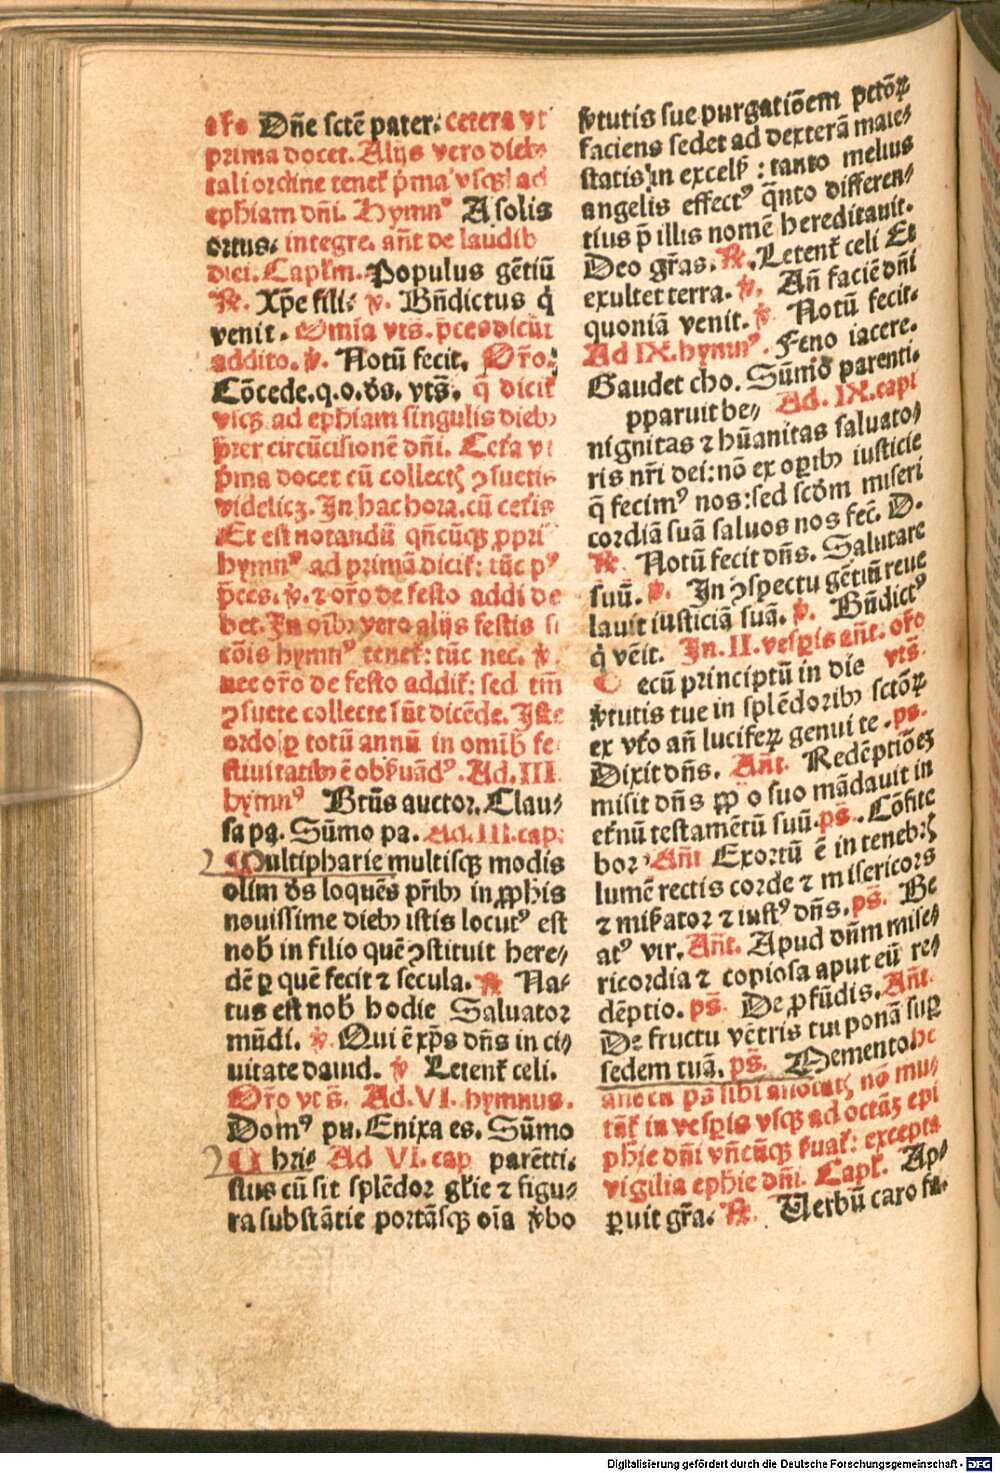 oro Dñe sctē pater: cetera vt
prima docet. Alijs vero dieb⁹
tali ordine tenet̄ p̄ma vsqꝫ ad
ephiam dñi. Hymn⁹ A solis
ortus. integre. añt de laudib
diei. Capl'm. Populus gētiū
℟. Xp̄e fili: ℣. Bn̄dictus q̇
venit. Om̄ia vts̄. p̄ces dicūt
addito. ℣. Notū fecit. Or̄o:
Cōcede. q. o. ds̄. vts̄. q̄ dicit̄
vsqꝫ ad ephiam singulis dieb⁹
p̄ter circūcisionē dñi. Cet̄a vt
p̄ma docet cū collectꝭ ꝯsuetis
videlicꝫ. In hac hora. cū cet̄is
Et est notandū qñcūqꝫ ꝓpri
hymn⁹ ad primā dicit̄: tūc p⁹
p̄ces. ℣. ⁊ or̄o de festo addi de
bet. In oīb⁹ vero alijs festis si
cōis hymn⁹ tenet̄: tūc nec. ℣.
nec or̄o de festo addit̄: sed tm̄
ꝯsuete collecte sūt dicēde. Iste
ordo ꝑ totū annū in omīb fe
stiuitatib⁹ ē obs̄uād⁹. Ad. III.
hymn⁹ Btūs auctor. Clau⸗
sa pa. Sūmo pa. Ad. III. cap:
Multipharie multisqꝫ modis
olim ds̄ loquēs pr̄ib⁹ in ꝓphis
nouissime dieb⁹ istis locut⁹ est
nob̄ in filio quē ꝯstituit here⸗
dē ꝑ quē fecit ⁊ secula. ℟ Na⸗
tus est nob̄ hodie Saluator
mūdi. ℣ Qui ē xp̄s dñs in ci⸗
uitate dauid. ℣ Letent̄ celi.
Or̄o vt s̄. Ad. VI. hymnus.
Dom⁹ pu. Enixa es. Sūmo
Chris Ad VI. cap parētti.
stus cū sit splēdor gl'ie ⁊ figu⸗
ra substātie portāsqꝫ oīa v̄bo
v̄tutis sue purgatiōem pctōꝝ
faciens sedet ad dexterā maies⸗
statis in excels̄: tanto melius
angelis effect⁹ q̄nto differen⸗
tius p̄ illis nomē hereditauit.
Deo gr̄as. ℟. Letent̄ celi Et
exultet terra. ℣. Añ faciē dñi
quoniā venit. ℣ Notū fecit.
Ad IX. hymn⁹. Feno iacere.
Gaudet cho. Sūmo parenti.
pparuit be⸗ Ad. IX. capt
nignitas ⁊ hūanitas saluato⸗
ris nr̄i dei: nō ex oꝑib⁹ iusticie
q̄ fecim⁹ nos: sed scdm miseri
cordiā suā saluos nos fec̄. D.
℟. Notū fecit dñs. Salutare
suū. ℣. In ꝯspectu gētiū reue
lauit iusticiā suā. ℣. Bn̄dict⁹
q̇ vēit. In. II. vesꝑis añt. or̄o
ecū principiū in die vts̄.
v̄tutis tue in splēdorib⁹ sctōꝝ
ex vt̄o añ luciferꝝ genui te. ps.
Dixit dñs. Añt. Redēptiōeꝫ
misit dñs ꝓꝓ o suo mādauit in
et̄nū testamētū suū. ps̄. Cōfite
bor Añt Exortū ē in tenebrꝭ
lumē rectis corde ⁊ misericors
⁊ mis̄ator ⁊ iust⁹ dñs. ps̄. Be
at⁹ vir. Añt. Apud dñm mise⸗
ricordia ⁊ copiosa aput eū re⸗
dēptio. ps̄. De ꝓfūdis. Añt.
De fructu vētris tui ponā suꝑ
sedem tuā. ps̄. Memento. he
añe cū ps̄ sibi annotatꝭ nō mu⸗
tāt̄ in vesꝑis vsqꝫ ad octāꝫ epi
phie dñi vñcūqꝫ s̄uat̄: excepta
vigilia ephie dñi. Capl'. Ap⸗
ꝑuit gr̄a. ℟. Uerbū caro fa.
Digitalisierung gefördert durch die Deutsche Forschungsgemeinschaft - DFG